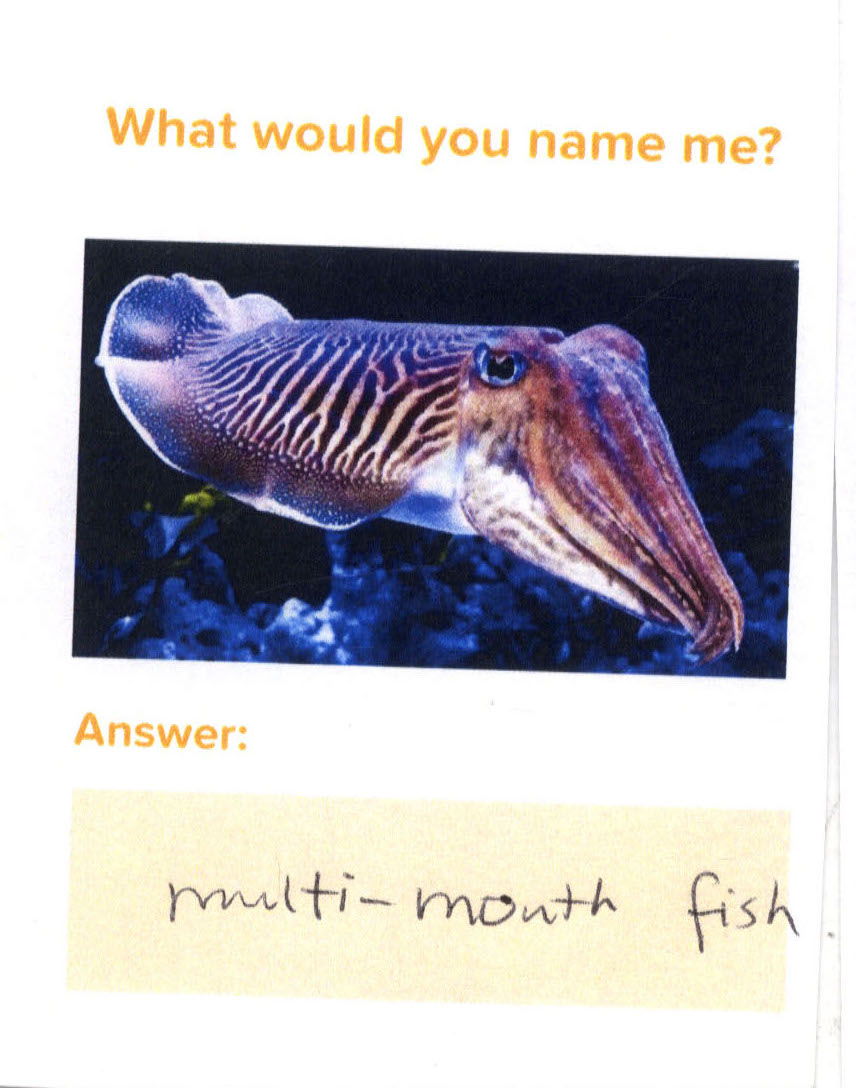 What would you name me?
Answer:
multi-mouth fish